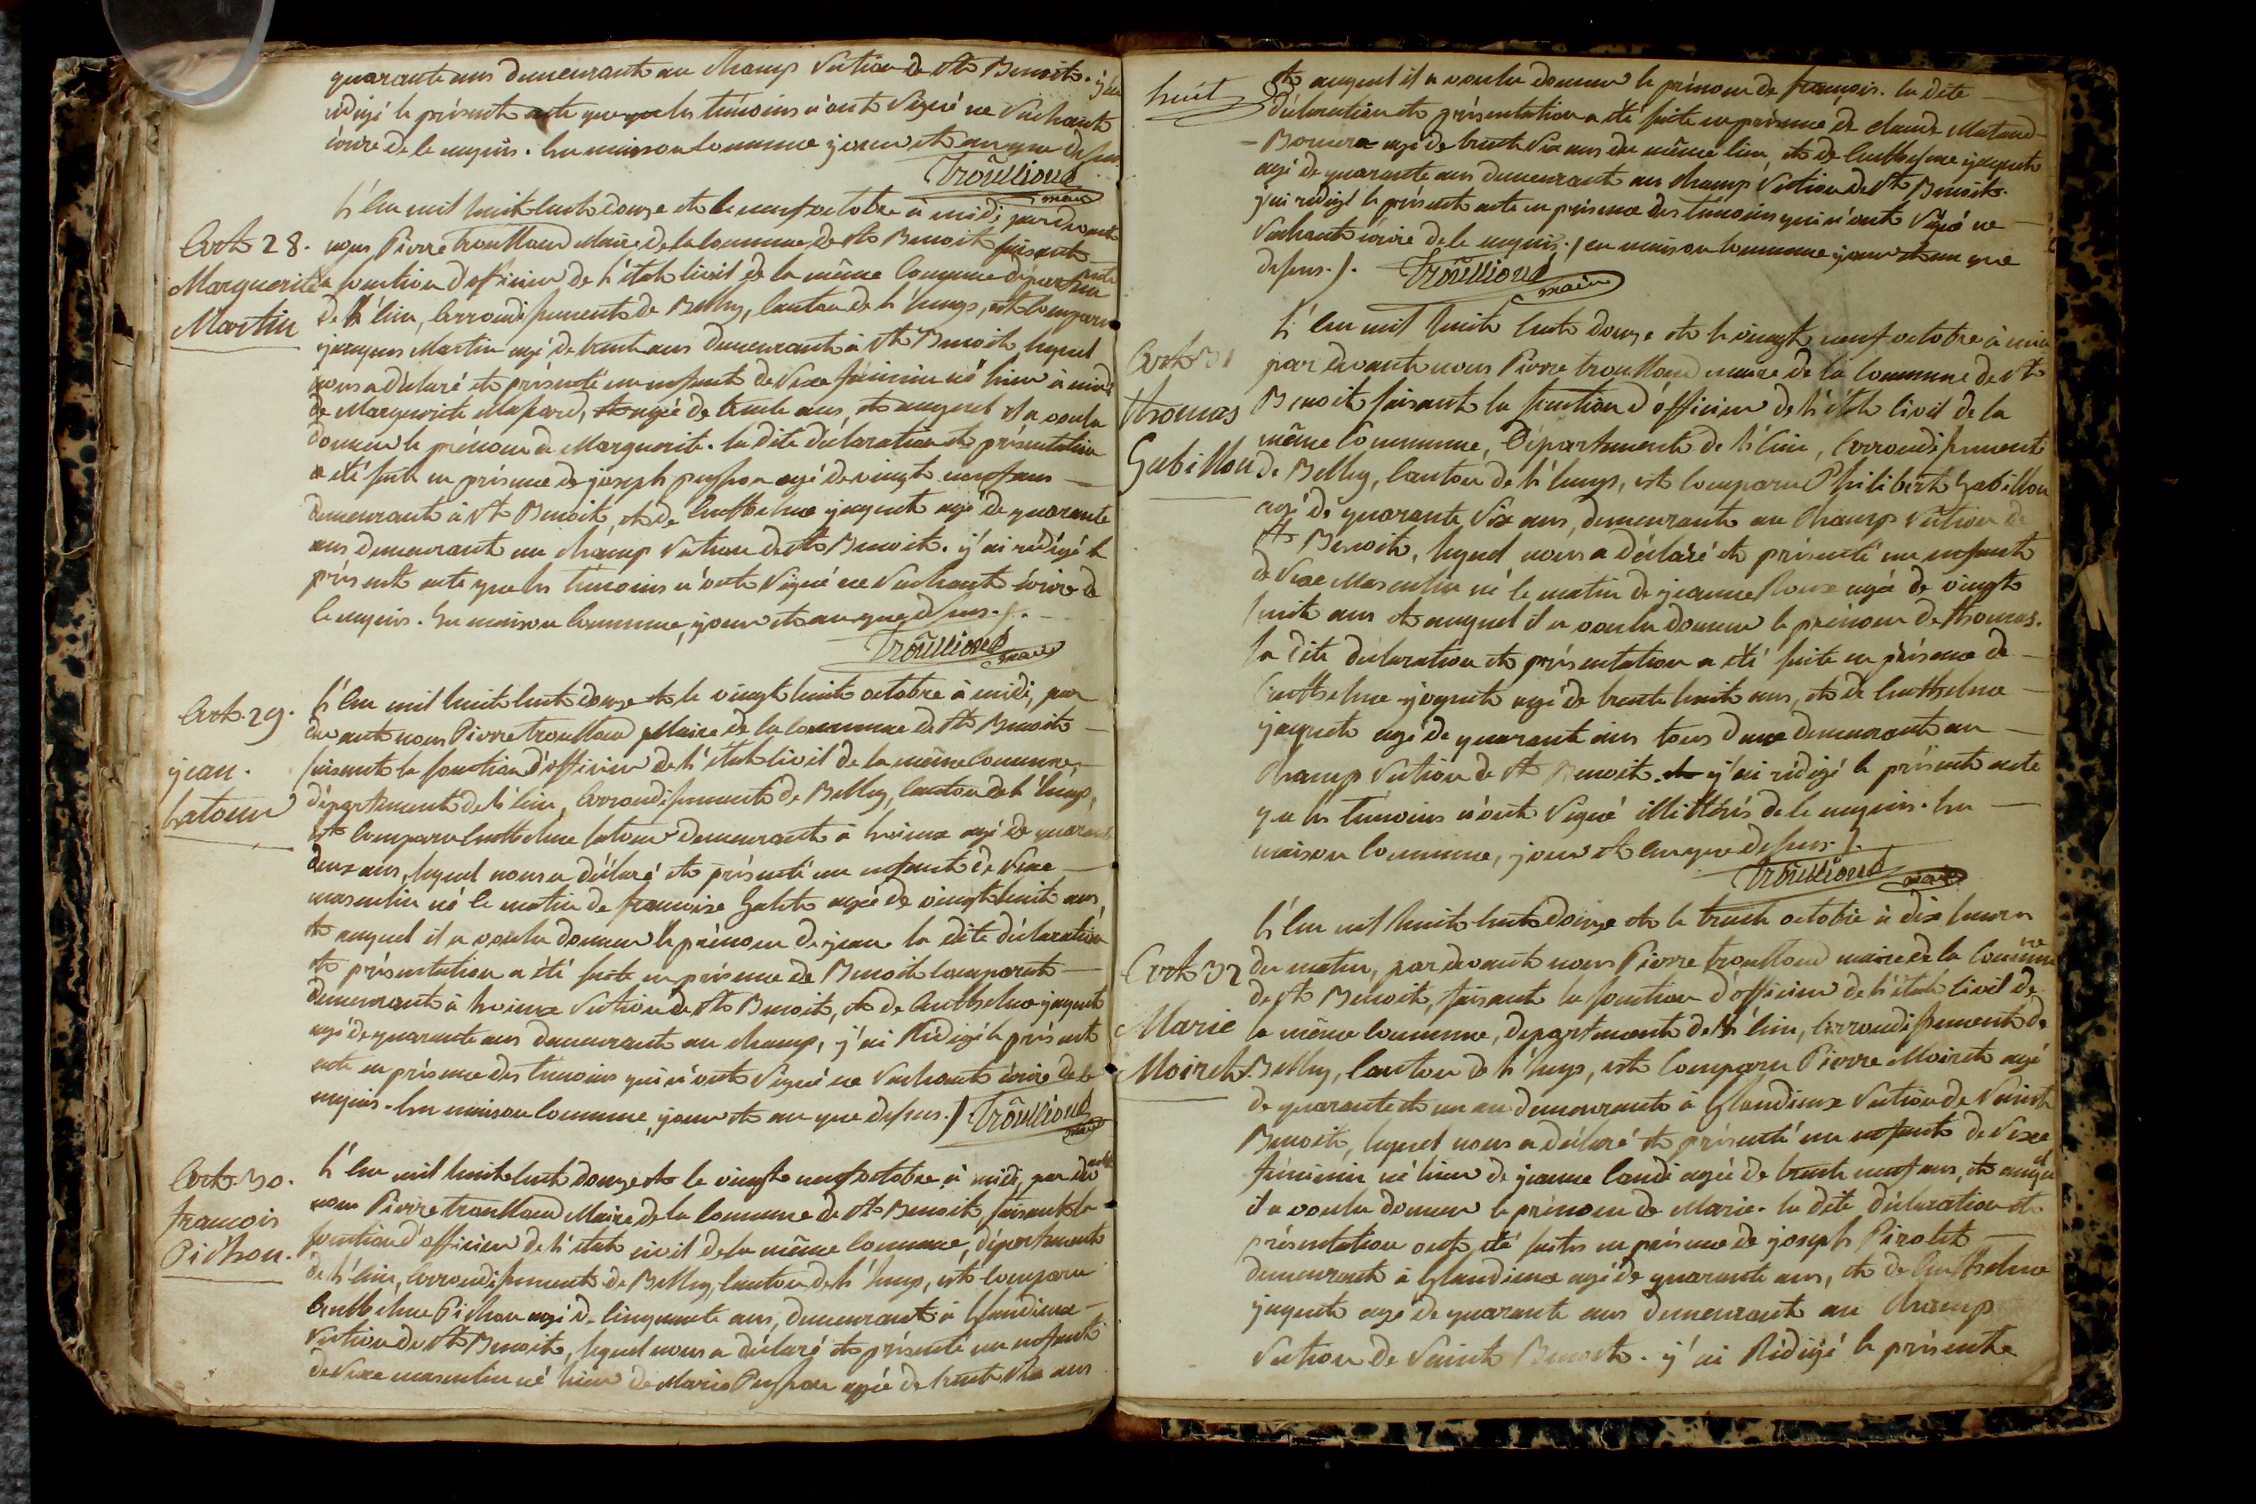 quarante ans demeurant au champ section de St Benoit. j'ai
rédigé le présent acte que les témoins n'ont signé ne sachant
écrire de le requis. En maison commune jour et an que dessus
Trouilloud
maire
L'an mil huit cent douze et le neuf octobre à midi pardevant
Art 28.
nous Pierre trouilloud Maire de la commune de St Benoit faisant
Marguerite
la fonction d'officier de l'état civil de la même commune département
Martin
de l'Ain, arrondissement de Belley, canton de l'huys, est comparu
jacques Martin agé de trente ans demeurant à St Benoit lequel
nous a déclaré et présenté un enfant de sexe féminin né hier à midi
de Marguerite , agée de trente ans, et auquel il a voulu
donner le prénom de Marguerite. la dite déclaration et présentation
a été faite en présence de joseph agé de vingt neuf ans
demeurant à St Benoit, et de Anthelme jaquet agé de quarante
ans demeurant au champ section de St Benoit. j'ai rédigé le
présent acte que les témoins n'ont signé ne sachant écrire de
le requis. En maison commune, jour et an que dessus./.
Trouilloud
maire
L'an mil huit cent douze et le vingt huit octobre à midi, par
Art. 29.
devant nous Pierre trouilloud Maire de la commune de St Benoit
jean.
faisant la fonction d'officier de l'état civil de la même commune,
Latour
département de l'Ain, arrondissement de Belley, canton de l'huys,
est comparu Anthelme latour demeurant à agé de quarante
deux ans, lequel nous a déclaré et présenté un enfant de sexe
masculin né le matin de francoise Galet agée de vingt huit ans,
et auquel il a voulu donner le prénom de jean la dite déclaration
et présentation a été faite en présence de Benoit
demeurant à section de St Benoit, et de Anthelme jaquet
agé de quarante ans demeurant au champ, j'ai Rédigé le présent
acte en présence des témoins qui n'ont signé ne sachant écrire de le
requis. En maison commune, jour et an que dessus./ Trouilloud
maire
Art. 30.
L'an mil huit cent douze et le vingt neuf octobre à midi, par devant
francois
nous Pierre trouilloud Maire de la commune de St Benoit faisant la
Pichon.
fonction d'officier de l'état civil de la même commune, département
de l'Ain, arrondissement de Belley, canton de l'huys, est comparu
Anthelme Pichon agé de cinquante ans, demeurant à Glandieux
section de St Benoit, lequel nous a déclaré et présenté un enfant
de sexe masculin né hier de Marie agée de trente six ans
huit
et auquel il a voulu donner le prénom de françois. la dite
déclaration et présentation a été faite en présence de claude
agé de trente six ans du même lieu, et de Anthelme jaquet
agé de quarante ans demeurant au champ section de St Benoit.
j'ai rédigé le présent acte en présence des témoins qui n'ont signé ne
sachant écrire de le requis./ en maison commune jour et an que
dessus./. Trouilloud
maire
L'an mil huit cent douze et le vingt neuf octobre à midi
Art 31
par devant nous Pierre trouilloud maire de la commune de St
thomas
Benoit faisant la fonction d'officier de l'état civil de la
Gabillon
même commune, Département de l'Ain, arrondissement
de Belley, canton de l'huys, est comparu Philibert Gabillon
agé de quarante six ans, demeurant au champ section de
St Benoit, lequel nous a déclaré et présenté un enfant
de sexe Masculin né le matin de jeanne Roux agée de vingt
huit ans et auquel il a voulu donner le prénom de thomas.
la dite déclaration et présentation a été faite en présence de
Anthelme jaquet agé de trente huit ans, et de Anthelme
jaquet agé de quarante ans tous deux demeurant au
champ section de St Benoit. j'ai rédigé le présent acte
que les témoins n'ont signé illitérés de le requis. En
maison commune, jour et an que dessus./.
Trouilloud
maire
L'an mil huit cent douze et le trente octobre à dix heures
Art 32
du matin, pardevant nous Pierre trouilloud maire de la commune
de St Benoit, faisant la fonction d'officier de l'état civil de
Marie
la même commune, departement de l'Ain, arrondissement de
Moiret
Belley, canton de l'huys, est comparu Pierre Moiret agé
de quarante et un an demeurant à Glandieux section de Saint
Benoit, lequel nous a déclaré et présenté un enfant de sexe
féminin né hier de jeanne agée de trente neuf ans, et auquel
il a voulu donner le prénom de Marie. la dite déclaration et
présentation ont été faites en présence de joseph Pirolet
demeurant à Glandieux agé de quarante ans, et de Anthelme
jaquet agé de quarante ans demeurant au champ
section de Saint Benoit. j'ai Rédigé le présent